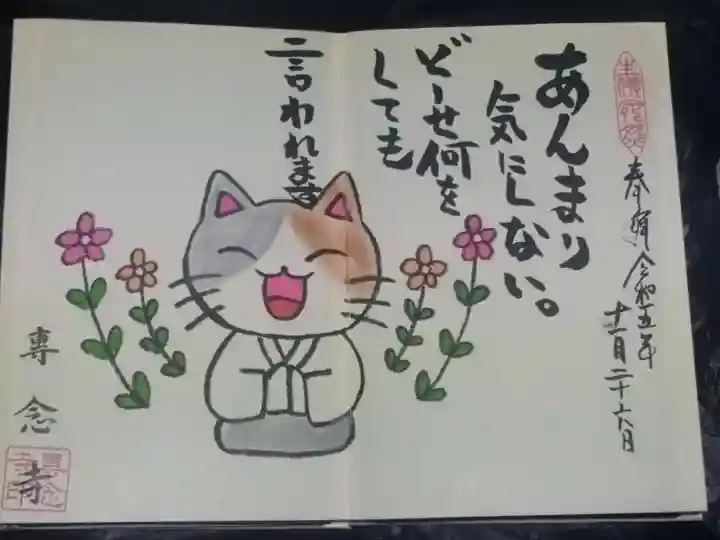 奉拝 令和五年
十一月二十六日
あんまり
気にしない。
どーせ何を
しても
言われます
専念寺